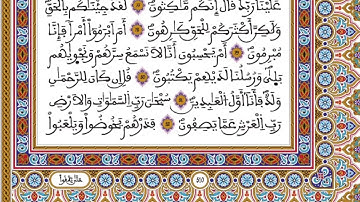 عَلَيْنَا رَبُّكَ قَالَ إِنَّكُم مَّاكِثُونَ لَقَدْ جِئْنَاكُم بِالْحَقِّ
وَلَٰكِنَّ أَكْثَرَكُمْ لِلْحَقِّ كَارِهُونَ أَمْ أَبْرَمُوا أَمْرًا فَإِنَّا
مُبْرِمُونَ أَمْ يَحْسَبُونَ أَنَّا لَا نَسْمَعُ سِرَّهُمْ وَنَجْوَاهُم
بَلَىٰ وَرُسُلُنَا لَدَيْهِمْ يَكْتُبُونَ قُلْ إِن كَانَ لِلرَّحْمَٰنِ
وَلَدٌ فَأَنَا أَوَّلُ الْعَابِدِينَ سُبْحَانَ رَبِّ السَّمَاوَاتِ وَالْأَرْضِ
رَبِّ الْعَرْشِ عَمَّا يَصِفُونَ فَذَرْهُمْ يَخُوضُوا وَيَلْعَبُوا